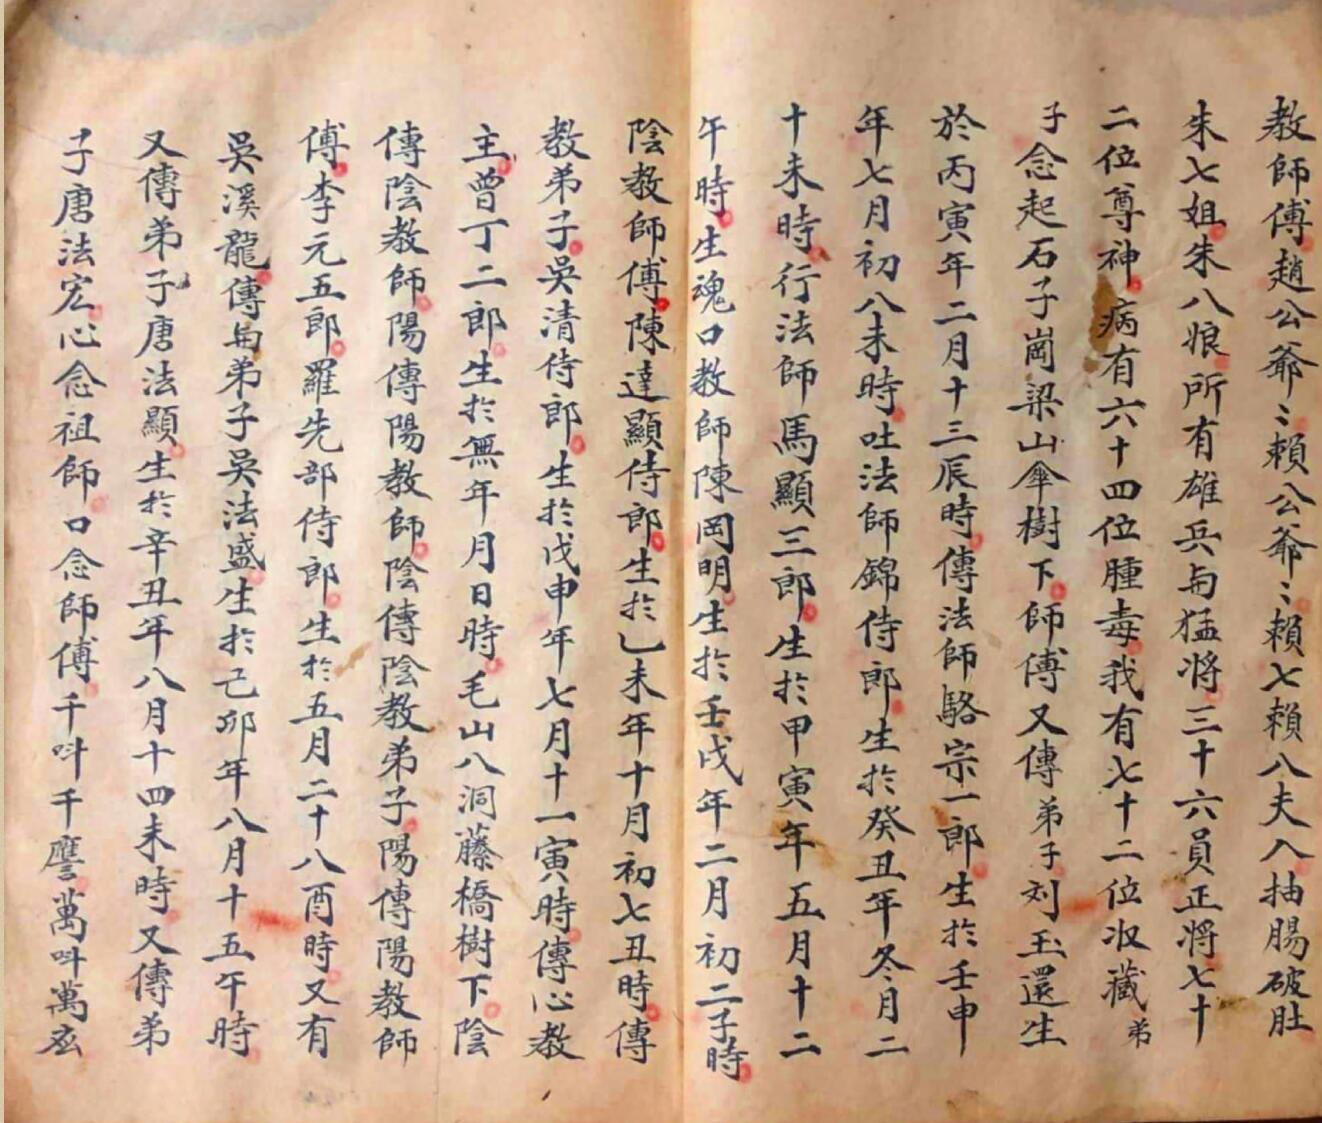 教師傅趙公爺〻賴公爺〻賴七賴八夫人抽腸破肚
朱七姐朱八娘所有雄兵与猛将三十六員正將七十
二位尊神病有六十四位腫毒我有七十二位收藏弟
子念起石子崗梁山傘樹下師傅又傳弟子刘玉還生
於丙寅年二月十三辰時傳法師駱宗一郎生於壬申
年七月初八未時吐法師錦侍郎生於癸丑年冬月二
十未時行法師馬顯三郎生於甲寅年五月十二
午時生魂口教師陳岡明生於壬戌年二月初二子時
陰教師傅陳達顯侍郎生於乙未年十月初七丑時傳
教弟子吳清侍郎生於戊申年七月十一寅時傳心教
主曾丁二郎生於無年月日時毛山八洞藤橋樹下陰
傳陰教師陽傳陽教師陰傳陰教弟子陽傳陽教師
傅李元五郎羅先部侍郎生於五月二十八酉時又有
吳溪龍傳与弟子吳法盛生於己卯年八月十五午時
又傳弟子唐法顯生於辛丑年八月十四未時又傳弟
子唐法宏心念祖師口念師傅千呌千應萬呌萬灵